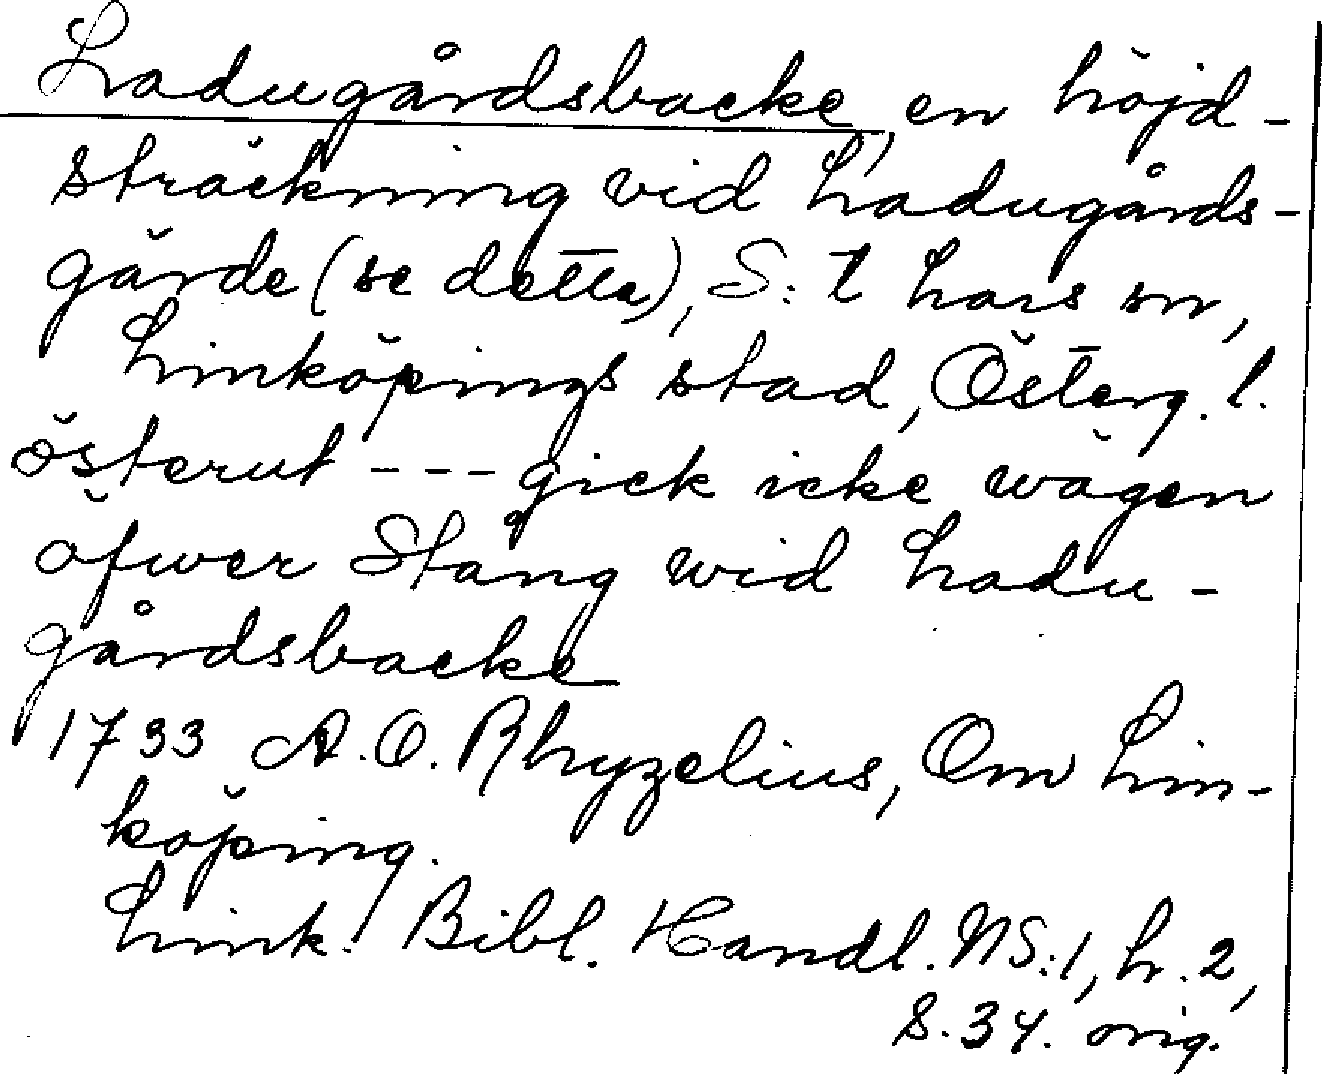 Ladugårdsbacke, en höjd-
sträckning vid Ladugårds-
gärde (se detta), S:t Lars sn,
Linköpings stad, Österg. l.
österut --- gick icke wägen
öfwer Stång wid Ladu-
gårdsbacke
1733 A.O. Rhyzelius, Om Lin-
köping.
Link. Bibl. Handl. NS:1, h. 2,
s. 34. orig.